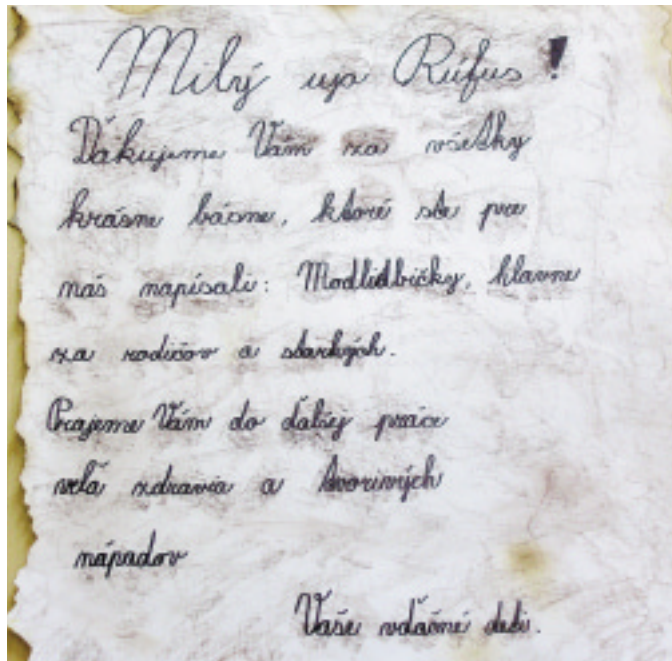 Milý ujo Rúfus!
Ďakujeme Vám za všetky
krásne básne, ktoré ste pre
nás napísali: Modlidbičky, hlavne
za rodičov a starkých.
Prajeme Vám do ďalšej práce
veľa zdravia a tvorivých
nápadov
Vaše vďačné deti.